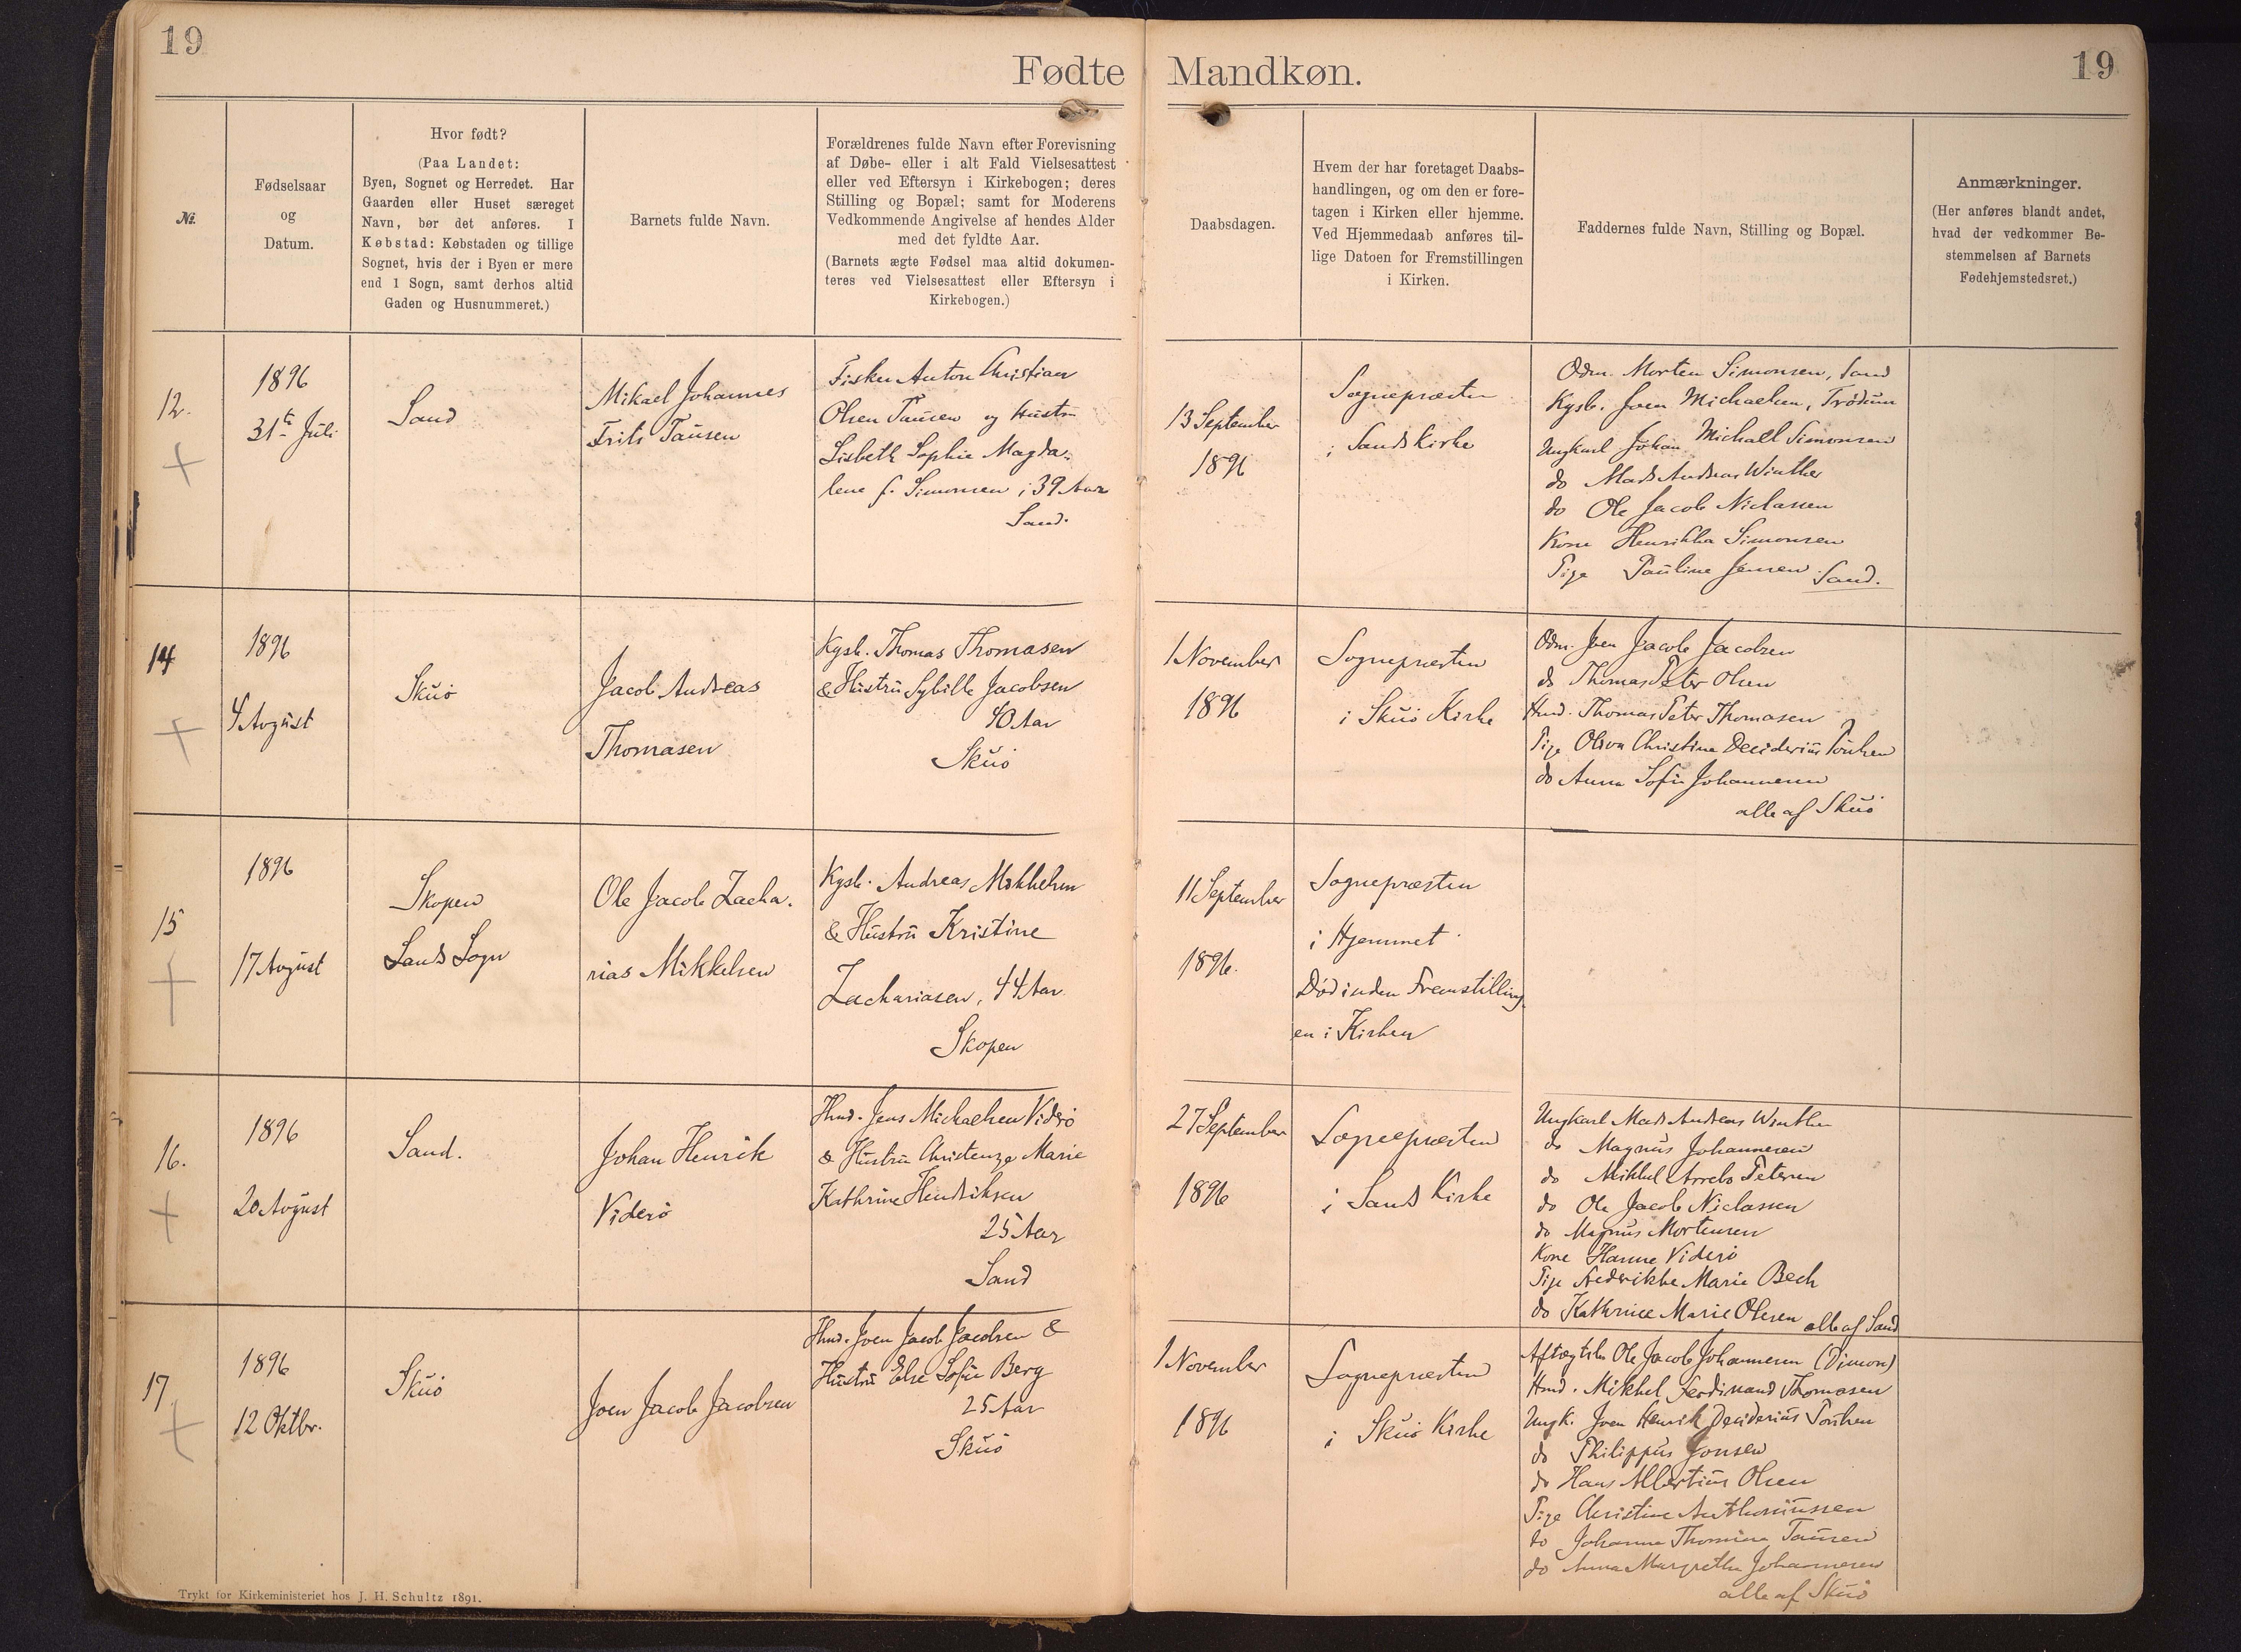 19
Fødte
Mandkøn.
19
No.
Fødselsaar
og
Datum.
Hvor født?
(Paa Landet:
Byen, Sognet og Herredet. Har
Gaarden eller Huset særeget
Navn, bør det anføres. I
Købstad: Købstaden og tillige
Sognet, hvis der i Byen er mere
end 1 Sogn, samt derhos altid
Gaden og Husnummeret.)
Barnets fulde Navn.
Forældrenes fulde Navn efter Forevisning
af Døbe- eller i alt Fald Vielsesattest
eller ved Eftersyn i Kirkebogen; deres
Stilling og Bopæl; samt for Moderens
Vedkommende Angivelse af hendes Alder
med det fyldte Aar.
(Barnets ægte Fødsel maa altid dokumen-
teres ved Vielsesattest eller Eftersyn i
Kirkebogen.)
Daabsdagen.
Hvem der har foretaget Daabs-
handlingen, og om den er fore-
tagen i Kirken eller hjemme.
Ved Hjemmedaab anføres til-
lige Datoen for Fremstillingen
i Kirken.
Faddernes fulde Navn, Stilling og Bopæl.
Anmærkninger.
(Her anføres blandt andet,
hvad der vedkommer Be-
stemmelsen af Barnets
Fødehjemstedsret.)
12.
1896
31te Juli
Sand
Mikael Johannes
Frits Tausen
Fisker Anton Christian
Olsen Tausen og Hustru
Lisbeth Sophie Magda-
lene f. Simonsen i 39 Aar
Sand.
13 September
1896
Sognepræsten
i Sands Kirke
Odm. Morten Simonsen, Sand
Kgsb. Joen Michaelsen, Trødum
Ungkarl Johan Michael Simonsen
do Mads Andreas Winther
do Ole Jacob Niclassen
Kone Henrikka Simonsen
Pige Pauline Jensen Sand.
14
1896
4 August
Skuö
Jacob Andreas
Thomasen
Kgsb. Thomas Thomasen
& Hustru Sybille Jacobsen
40 Aar
Skuö
1 November
1896
Sognepræsten
i Skuö Kirke
Odm. Joen Jacob Jacobsen
do Thomas Peter Olsen
Hmd. Thomas Peter Thomasen
Pige Christine Deciderius
do Anna Sofie Johannesen
alle af Skuö
15
1896
17 August
Skopen
Sands Sogn
Ole Jacob Zacha-
rias Mikkelsen
Kgsb. Andreas Mikkelsen
& Hustru Kristine
Zachariasen, 44 Aar
Skopen
11 September
1896.
Sognepræsten
i Hjemmet
Död inden Fremstilling
en i Kirken
16.
1896
20 August
Sand.
Johan Henrik
Viderö
Hmd. Jens Michaelsen Viderö
& Hustru Christenze Marie
Kathrine Hendriksen
25 Aar
Sand
27 September
1896
Sognepræsten
i Sands Kirke
Ungkarl Mads Andreas Winther
do Magnus Johannesen
do Mikkel Arrebo Petersen
do Ole Jacob Niclassen
do Magnus Mortensen
Kone Hanne Viderö
Pige Fredrikke Marie Bech
do Kathrine Marie Olesen alle af Sand
17
1896
12 Oktbr.
Skuö
Joen Jacob Jacobsen
Hmd. Joen Jacob Jacobsen &
Hustru Else Sofie Berg
25 Aar
Skuö
1 November
1896
Sognepræsten
i Skuö Kirke
Ole Jacob Johannesen (Dimon)
Hmd. Mikkel Ferdinand Thomasen
Ungk. Joen Henrik Deciderius
do Philippus Jonsen
do Hans Albertius Olsen
Pige Christine Anthoniussen
do Johanne Thomine Tausen
do Anna Margrethe Johannesen
alle af Skuö
Trykt for Kirkeministeriet hos J. H. Schultz 1891.